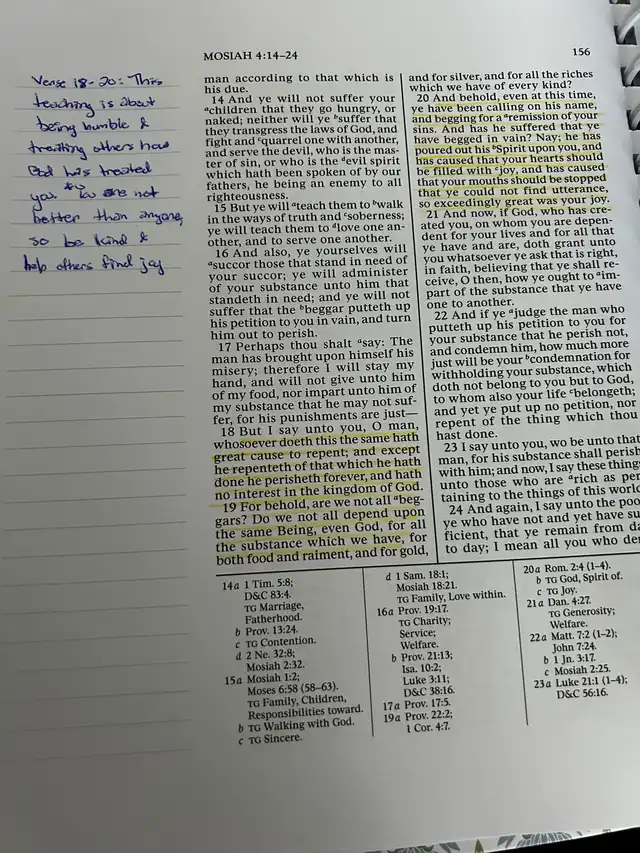 MOSIAH 4:14–24
156
Verse 18-20: This
teaching is about
being humble &
treating others how
God has treated
you.
not
better than anyone,
so be kind &
help others find joy
man according to that which is
his due.
14 And ye will not suffer your
ᵃchildren that they go hungry, or
naked; neither will ye ᵇsuffer that
they transgress the laws of God, and
fight and ᶜquarrel one with another,
and serve the devil, who is the mas-
ter of sin, or who is the ᵈevil spirit
which hath been spoken of by our
fathers, he being an enemy to all
righteousness.
15 But ye will ᵃteach them to ᵇwalk
in the ways of truth and ᶜsoberness;
ye will teach them to ᵈlove one an-
other, and to serve one another.
16 And also, ye yourselves will
ᵃsuccor those that stand in need of
your succor; ye will administer
of your substance unto him that
standeth in need; and ye will not
suffer that the ᵇbeggar putteth up
his petition to you in vain, and turn
him out to perish.
17 Perhaps thou shalt ᵃsay: The
man has brought upon himself his
misery; therefore I will stay my
hand, and will not give unto him
of my food, nor impart unto him of
my substance that he may not suf-
fer, for his punishments are just—
18 But I say unto you, O man,
whosoever doeth this the same hath
great cause to repent; and except
he repenteth of that which he hath
done he perisheth forever, and hath
no interest in the kingdom of God.
19 For behold, are we not all ᵃbeg-
gars? Do we not all depend upon
the same Being, even God, for all
the substance which we have, for
both food and raiment, and for gold,
and for silver, and for all the riches
which we have of every kind?
20 And behold, even at this time,
ye have been calling on his name,
and begging for a ᵃremission of your
sins. And has he suffered that ye
have begged in vain? Nay; he has
poured out his ᵇSpirit upon you, and
has caused that your hearts should
be filled with ᶜjoy, and has caused
that your mouths should be stopped
that ye could not find utterance,
so exceedingly great was your joy.
21 And now, if God, who has cre-
ated you, on whom you are depen-
dent for your lives and for all that
ye have and are, doth grant unto
you whatsoever ye ask that is right,
in faith, believing that ye shall re-
ceive, O then, how ye ought to ᵃim-
part of the substance that ye have
one to another.
22 And if ye ᵃjudge the man who
putteth up his petition to you for
your substance that he perish not,
and condemn him, how much more
just will be your ᵇcondemnation for
withholding your substance, which
doth not belong to you but to God,
to whom also your life ᶜbelongeth;
and yet ye put up no petition, nor
repent of the thing which thou
hast done.
23 I say unto you, wo be unto that
man, for his substance shall perish
with him; and now, I say these things
unto those who are ᵃrich as per
taining to the things of this world
24 And again, I say unto the poo
ye who have not and yet have su
ficient, that ye remain from da
to day; I mean all you who de
14a 1 Tim. 5:8;
D&C 83:4.
TG Marriage,
Fatherhood.
b Prov. 13:24.
c TG Contention.
d 2 Ne. 32:8;
Mosiah 2:32.
15a Mosiah 1:2;
Moses 6:58 (58–63).
TG Family, Children,
Responsibilities toward.
b TG Walking with God.
c TG Sincere.
d 1 Sam. 18:1;
Mosiah 18:21.
TG Family, Love within.
16a Prov. 19:17.
TG Charity;
Service;
Welfare.
b Prov. 21:13;
Isa. 10:2;
Luke 3:11;
D&C 38:16.
17a Prov. 17:5.
19a Prov. 22:2;
1 Cor. 4:7.
20a Rom. 2:4 (1–4).
b TG God, Spirit of.
c TG Joy.
21a Dan. 4:27.
TG Generosity;
Welfare.
22a Matt. 7:2 (1–2);
John 7:24.
b 1 Jn. 3:17.
c Mosiah 2:25.
23a Luke 21:1 (1–4);
D&C 56:16.